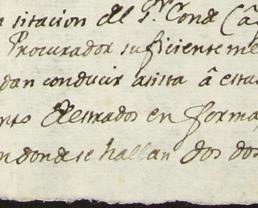 sitacion del S.r Conde
Procurador suficienteme
dan conducir asista â esta
nto destrados en forma
n donde se hallan dos do